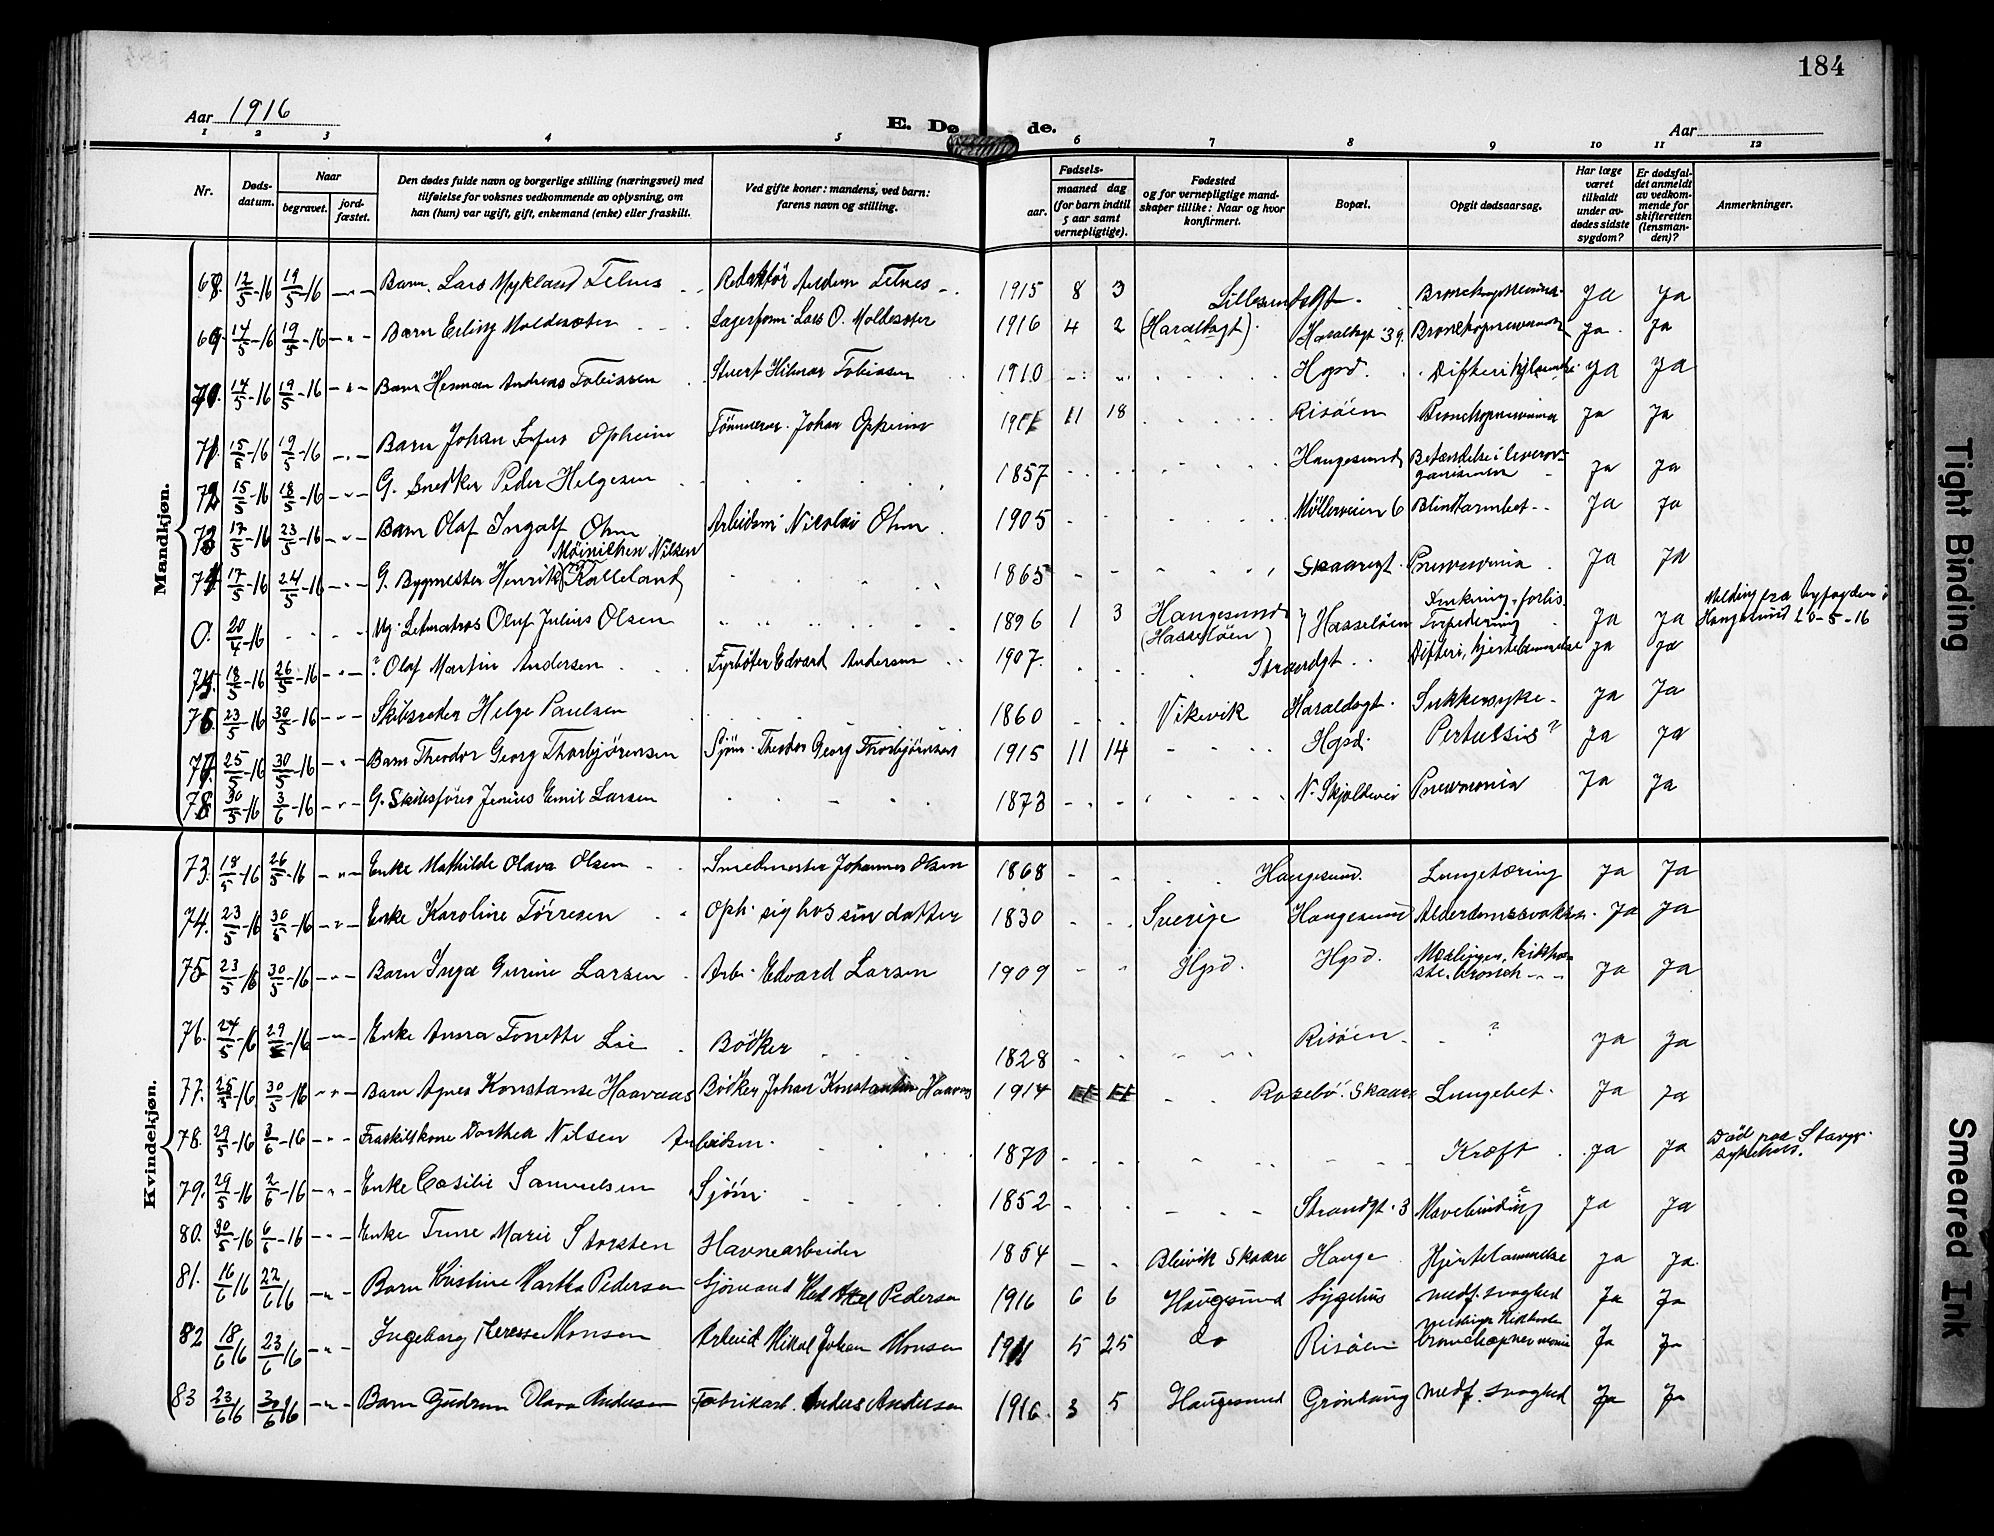 184
Aar 1916
E. Dø de.
Aar
1 2 3 4 5 6 7 8 9 10 11 12
Nr.
Døds-
datum.
Naar
begravet.
jord-
fæstet.
Den dødes fulde navn og borgerlige stilling (næringsvei) med
tilføielse for voksnes vedkommende av oplysning, om
han (hun) var ugift, gift, enkemand (enke) eller fraskilt.
Ved gifte koner: mandens, ved barn:
farens navn og stilling.
Fødsels-
aar.
maaned dag
(for barn indtil
5 aar samt
vernepligtige).
Fødested
og for vernepligtige mand-
skaper tillike: Naar og hvor
konfirmert.
Bopæl.
Opgit dødsaarsag.
Har læge
været
tilkaldt
under av-
dødes sidste
sygdom?
Er dødsfal-
det anmeldt
av vedkom-
mende for
skifteretten
(lensman-
den)?
Anmerkninger.
Mandkjøn.
68. 12/5-16 19/5-16 -"- Barn. Lars Mykland Telnes Redaktör Telnes 1915 8 3 Ja Ja
69. 14/5-16 19/5-16 -"- Barn Erling Moldesæter Lars O. Moldesæter 1916 4 2 (Haraldsgt). Haraldsgt 39. Bronchopneumonia Ja Ja
70. 14/5-16 19/5-16 -"- Barn Herman Andreas Tobiassen Stuert Hilmar Tobiassen 1910 Hgsd. Difteri Ja Ja
71. 15/5-16 19/5-16 -"- Barn Johan Opheim Johan Opheim 11 18 Risöen Bronchopneumonia Ja Ja
72. 15/5-16 18/5-16 -"- G. Snedker Peder Helgesen 1857 Haugesund Betændelse i Ja Ja
73. 17/5-16 23/5-16 -"- Barn Olaf Ingolf Ohm Arbeidsm. Nicolai Ohm 1905 Möllerveien 6 Blindtarmbet. Ja Ja
Nilsen
74. 17/5-16 24/5-16 -"- G. Bygmester Henrik (Kalleland) 1865 Skaaregt. Pneumonia Ja Ja
0. 20/4-16 Ug. Letmatros Oluf Julius Olsen 1896 1 3 Haugesund (Hasselöen) Hasselöen forlis. Torpedering Ja Ja Melding fra byfogden i Haugesund 20-5-16
75. 18/5-16 26/5-16 -"- ? Olaf Martin Andersen Fyrböter Edvard Andersen 1907. Strandgt. Difteri, hjertelammelse Ja Ja
76. 23/5-16 30/5-16 -"- Skibsreder Helge Paulsen 1860 Vikevik Haraldsgt. Sukkersyke Ja Ja
77. 25/5-16 30/5-16 -"- Barn Theodor Georg Thorbjörensen Sjöm. Theodor Georg Thorbjörnsen 1915 11 14 Hgsd. Pertussis? Ja Ja
78. 30/5-16 3/6-16 -"- G. Skibsförer Jenius Emil Larsen 1873 N. Skjoldevei Pneumonia Ja Ja
Kvindekjøn.
73. 18/5-16 26/5-16 -"- Enke Mathilde Olava Olsen Smedmester Johannes Olsen 1868 Haugesund. Lungetæring Ja Ja
74. 23/5-16 30/5-16 -"- Enke Karoline Törresen Oph. sig hos sin datter 1830 Sverige Haugesund Alderdomssvakhet. Ja Ja
75 23/5-16 30/5-16 -"- Barn Inga Gurine Larsen Arb. Edvard Larsen 1909 Hgsd. Hgsd. Mæslinger, kikho- ste, bronch Ja Ja
76. 24/5-16 29/5-16 -"- Enke Anna Tonette Lie Bödker 1828 Risöen ? Ja Ja
77. 25/5-16 30/5-16 -"- Barn Agnes Konstanse Haavaas Bödker Johan Konstantin Haavaas 1914 Skaare Lungebet. Ja Ja
78. 29/5-16 3/6-16 -"- Fraskilt kone Dorthea Nilsen Arbeidsm. 1870 Kræft Ja Ja Död paa Stavgr. sykehus.
79. 29/5-16 2/6-16 -"- Enke Cæsilie Samuelsen Sjöm. 1852 Strandgt. 3 Maveblödning Ja Ja
80. 30/5-16 6/6-16 -"- Enke Trine Marie Storsten Havnearbeider 1854 Bleivik Skaare Hauge Hjertelammelse Ja Ja.
81. 16/6 16 22/6 16 -"- Barn Kristine Martha Pedersen Sjömand Axel Pedersen 1916 6 6 Haugesund Sygehus medf. svaghed Ja Ja
82 18/6 16 23/6 16 -"- Ingeborg Terese Monsen Arbeid Mikal Johan Monsen 1911 5 25 do Risöen bronchopnevmoni Ja Ja
83 23/6 16 30/6 16 -"- Barn Gudrun Olava Andersen Fabrikarb. Anders Andersen 1916. 3 5 Haugesund Grönhaug medf. svaghed Ja Ja
Tight Binding
Smeared Ink